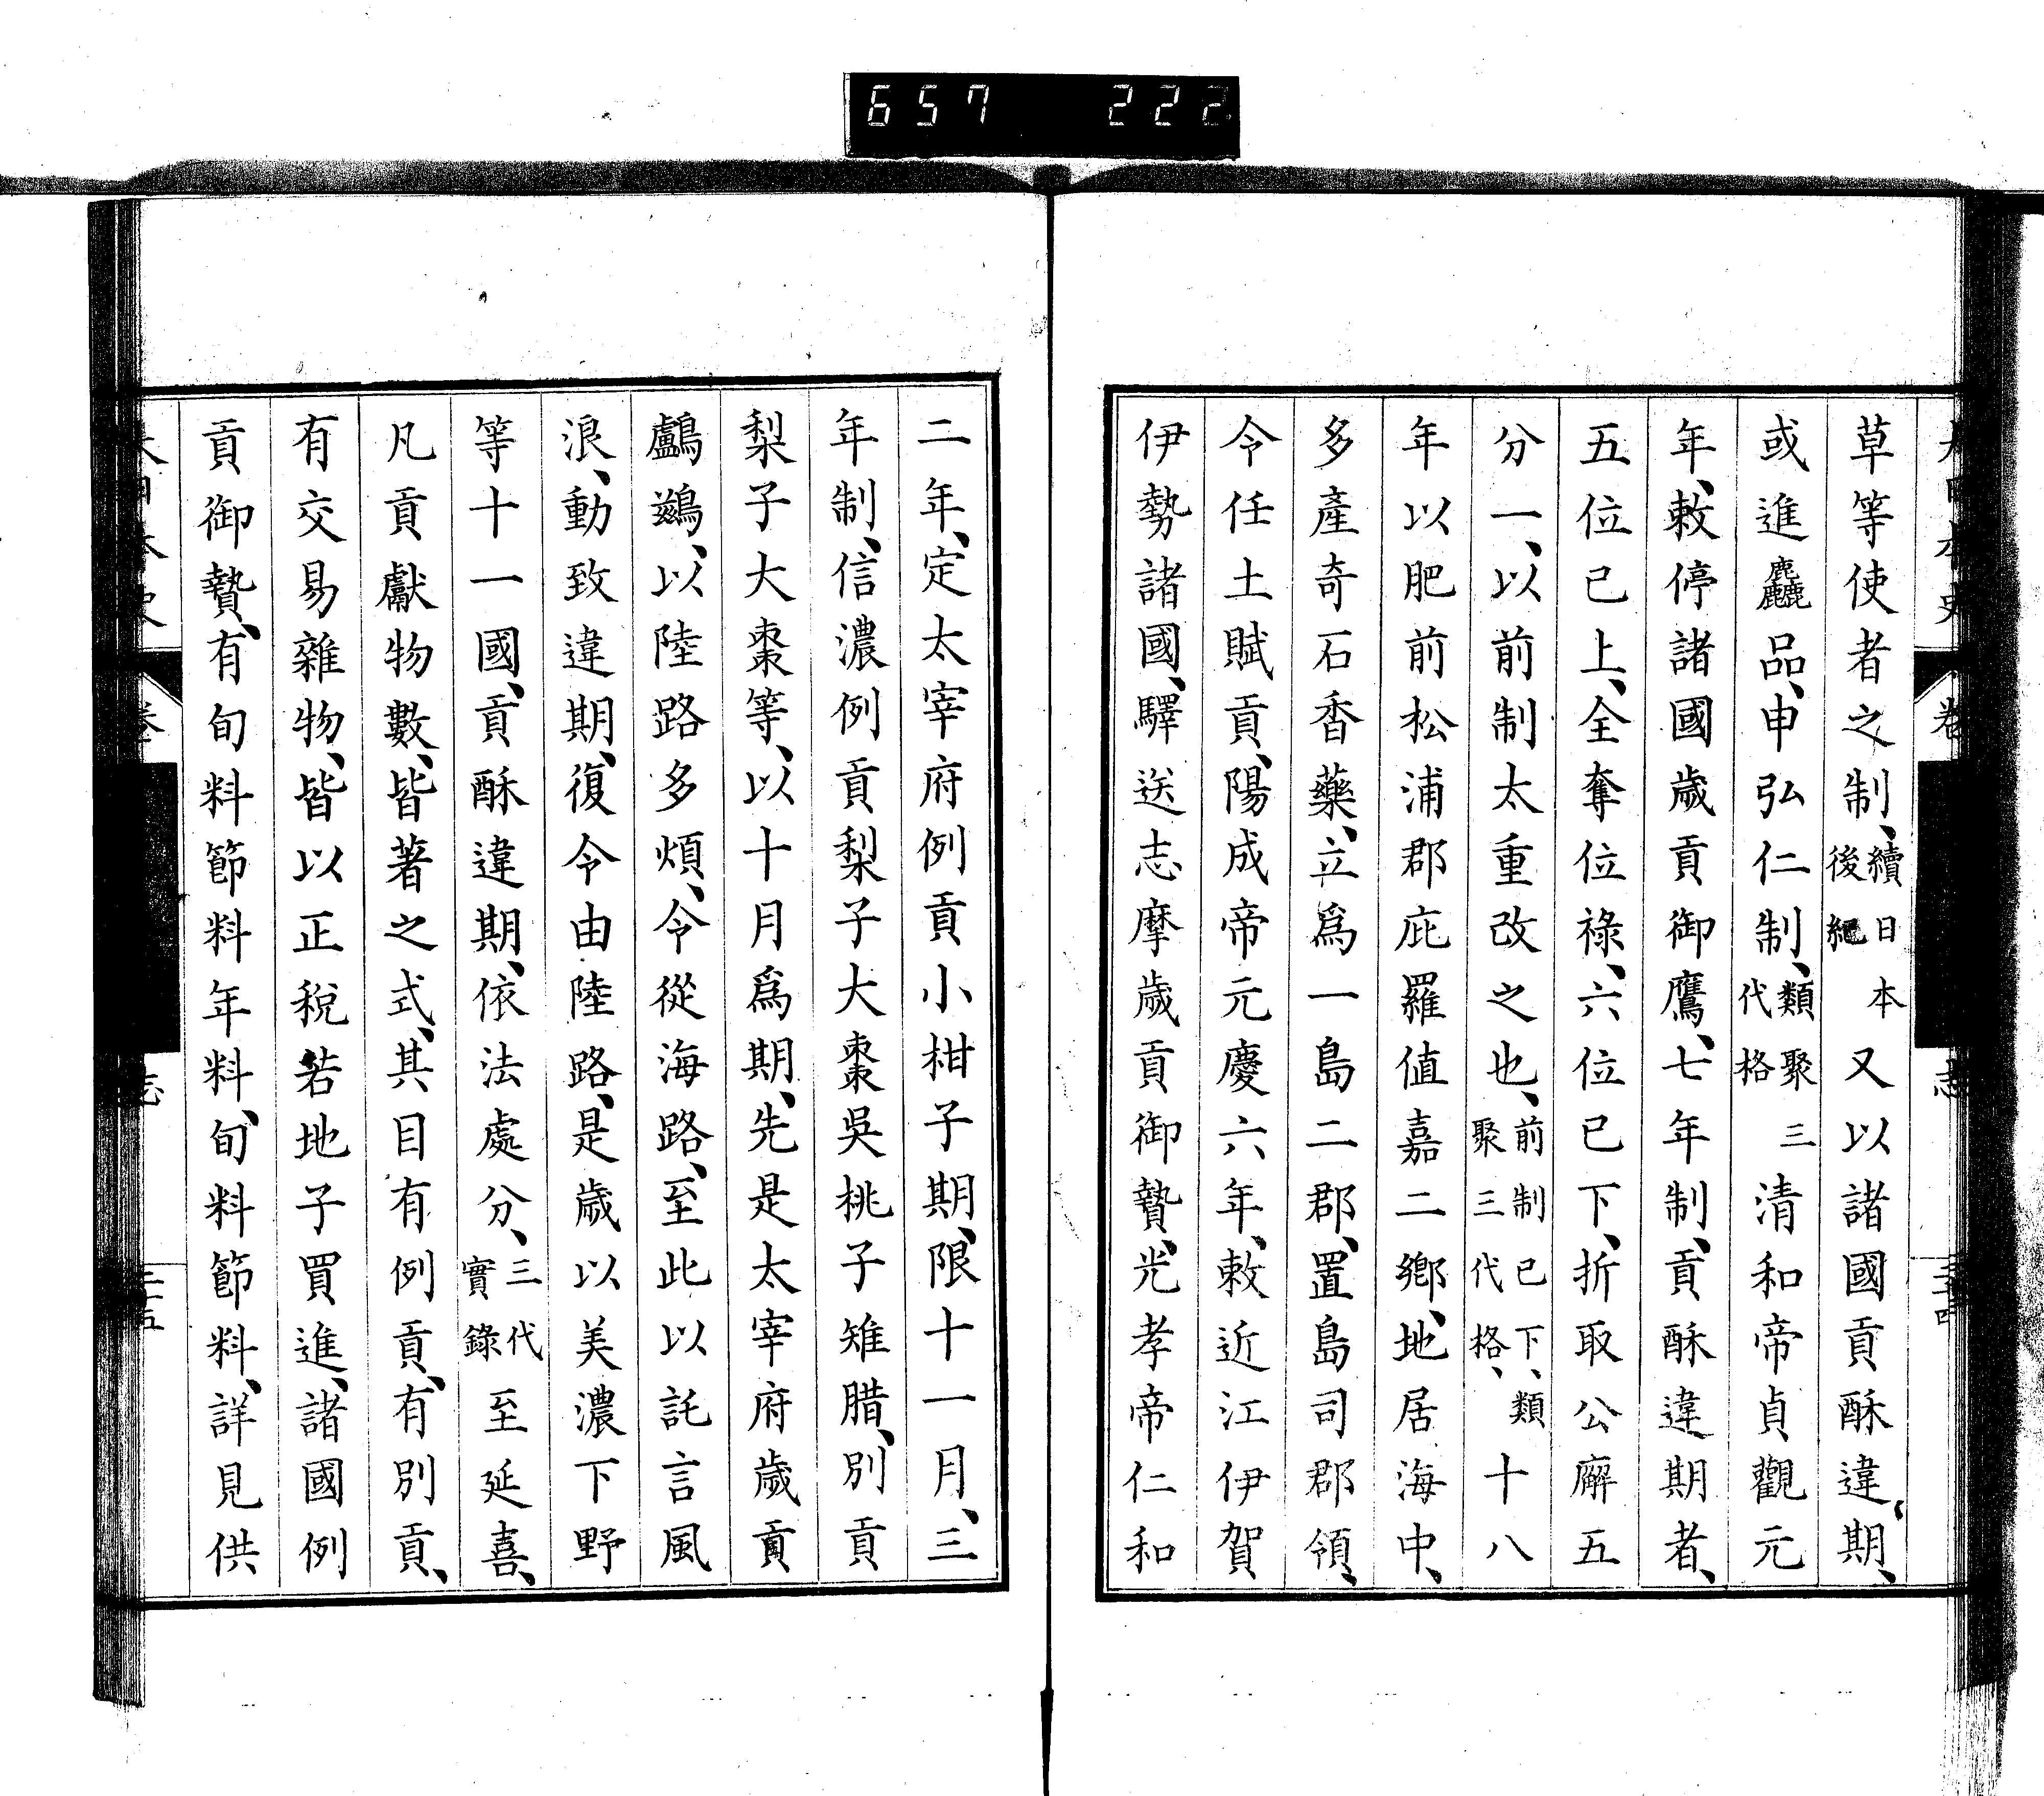 657 222
草等使者之制、續日本後紀又以諸國貢酥違期、
或進麤品、申弘仁制、類聚三代格清和帝貞觀元
年、敕停諸國歲貢御鷹、七年制、貢酥違期者、
五位已上、全奪位祿、六位已下、折取公廨五
分一、以前制太重改之也、前制已下、類聚三代格、十八
年以肥前松浦郡庇羅値嘉二鄉、地居海中、
多產奇石香藥、立爲一島二郡、置島司郡領、
令任土賦貢、陽成帝元慶六年、敕近江伊賀
伊勢諸國、驛送志摩歲貢御贄、光孝帝仁和
二年、定太宰府例貢小柑子期、限十一月、三
年制、信濃例貢梨子大棗吳桃子雉腊、別貢
梨子大棗等、以十月爲期、先是太宰府歲貢
鸕鷀、以陸路多煩、令從海路、至此以託言風
浪、動致違期、復令由陸路、是歲以美濃下野
等十一國、貢酥違期、依法處分、三代實錄至延喜、
凡貢獻物數、皆著之式、其目有例貢、有別貢、
有交易雜物、皆以正稅若地子買進、諸國例
貢御贄、有旬料節料年料、旬料節料、詳見供